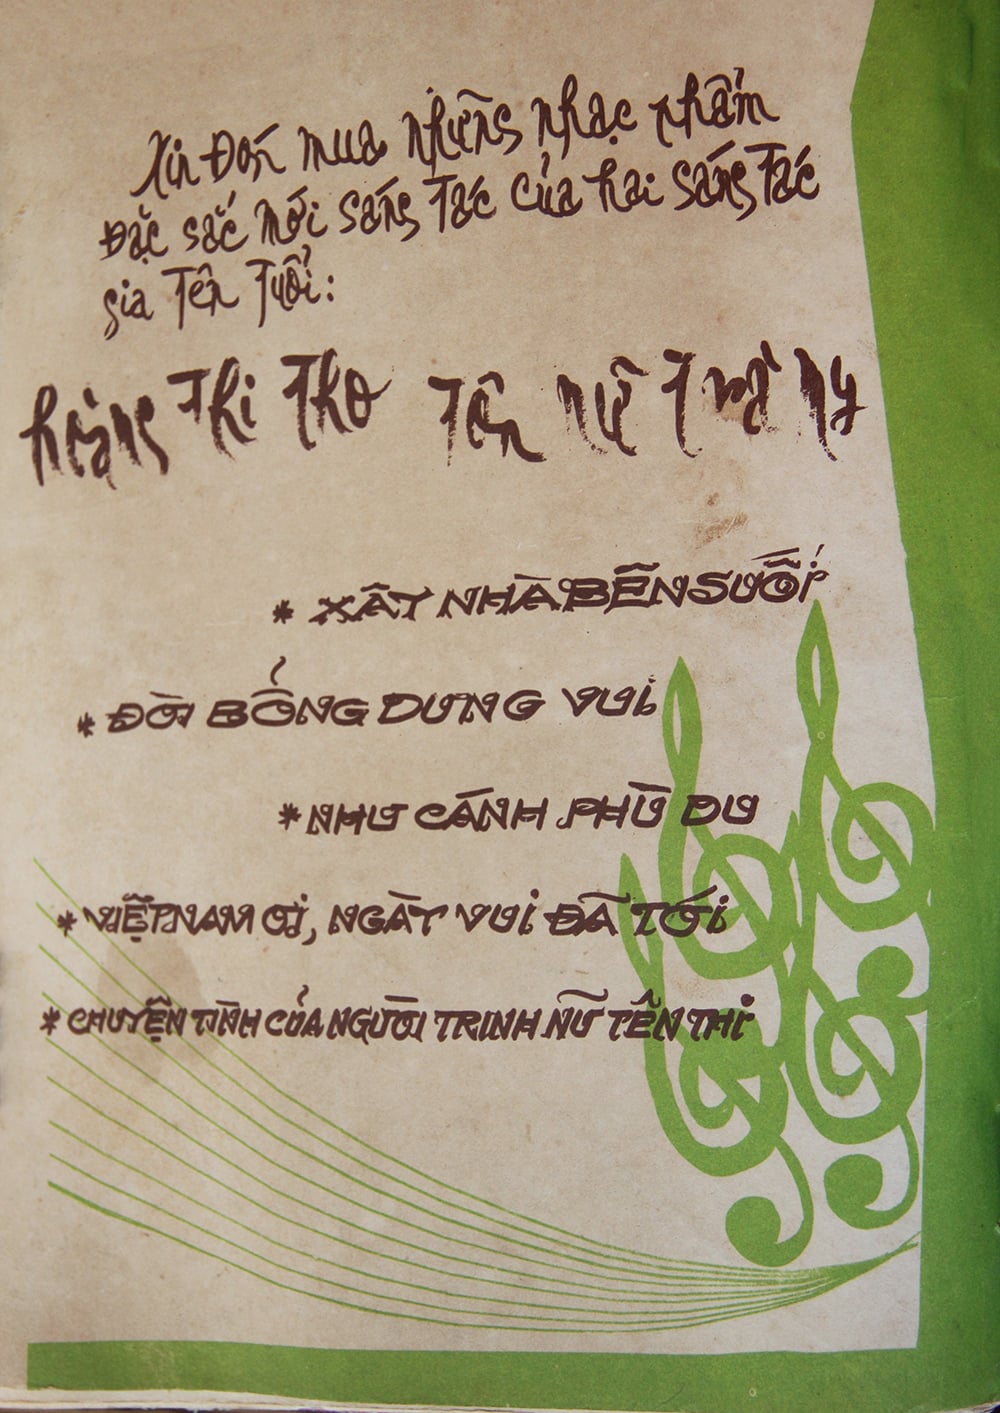 Xin Đón mua những nhạc phẩm
Đặc sắc mới sáng tác của hai sáng tác
gia tên tuổi:
hoàng thi thơ tôn nữ trà my
* XÂY NHÀ BÊN SUỐI
* ĐỜI BỔNG DƯNG VUI
* NHƯ CÁNH PHÙ DU
* VIỆT NAM ƠI, NGÀY VUI ĐÃ TỚI
* CHUYỆN TÌNH CỦA NGƯỜI TRINH NỮ TÊN THI